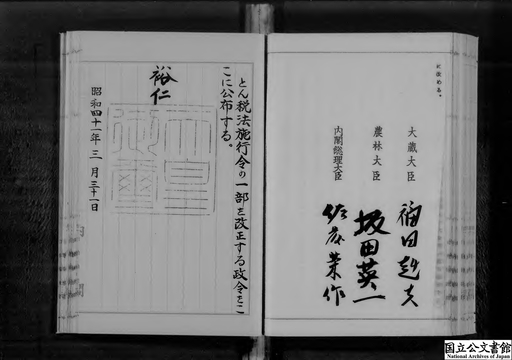 に改める。
大蔵大臣
福田赳夫
農林大臣
坂田英一
内閣総理大臣
佐藤栄作
とん税法施行令の一部を改正する政令をこ
こに公布する。
裕仁
天皇御璽
昭和四十一年三月三十一日
国立公文書館
National Archives of Japan